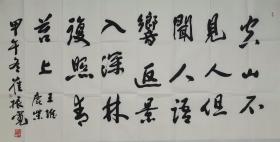 空山不
見人但
聞人語
響返景
入深林
復照青
苔上
王維
鹿柴
甲午冬崔振寬